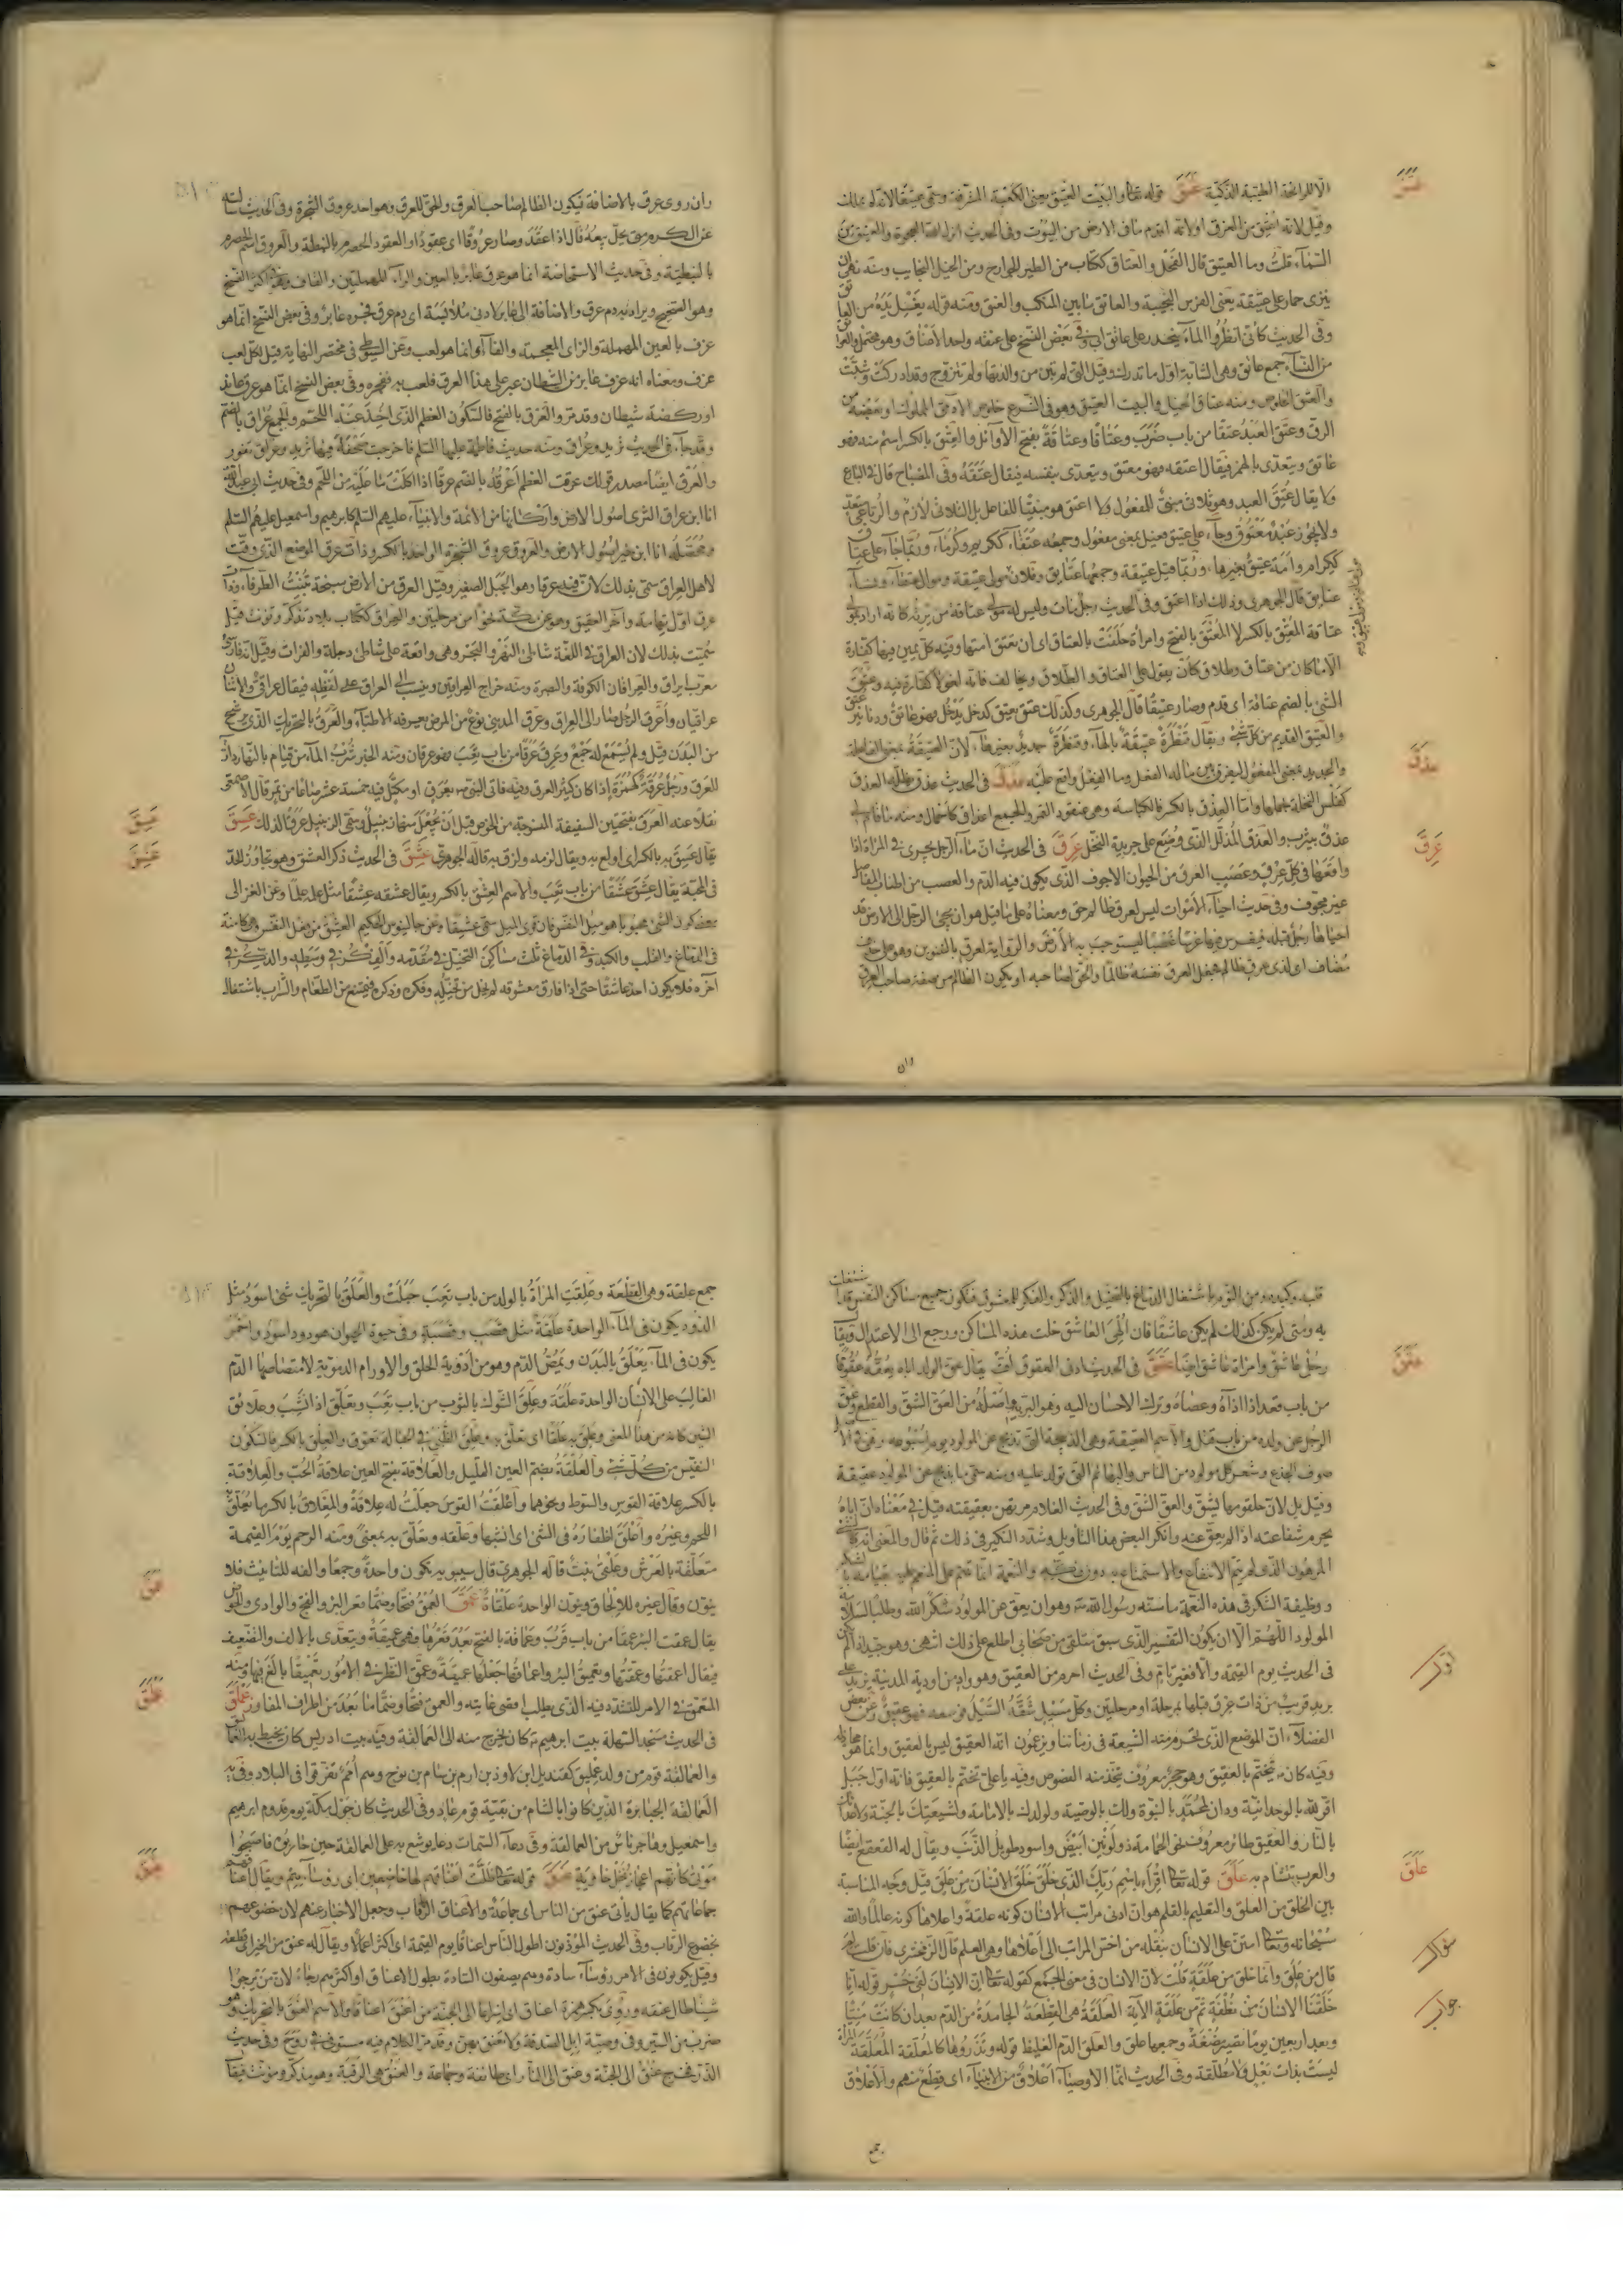 الا الرائحة الطيبة الذكية عتق قوله تعالى والبيت العتيق يعنى الكعبة المشرفة وسمى عتيقا لانه لم يملك
وقيل لانه اعتق من الغرق اولانه اقدم ما فى الارض من البيوت وفى الحديث
السماء قلت وما العتيق قال الفحل والعتاق ككتاب من الطير الجوارح ومن الخيل النجايب ومنه نهى ان
ينزى حمار على عتيقة يعنى الفرس النجيبة والعاتق ما بين المنكب والعنق ومنه قوله يغسل يديه من العاتق
وفى الحديث كأنى انظر والماء ينحدر على عاتق ابى وفى بعض النسخ على عنقه واحد الاعناق وهو محتمل
من النساء جمع عاتق وهى الشابة اول ما تدرك وقيل التى لم تبن من والديها ولم تتزوج وقد ادركت وشبت
والعتق الخلوص ومنه عتاق الخيل والبيت العتيق وهو فى الشرع خلوص الآدمى المملوك او بعضه من
الرق وعتق العبد عتقا من باب ضرب وعتاقا وعتاقة بفتح الاوائل والعتق بالكسر اسم منه فهو
عاتق ويتعدى بالهمز فيقال اعتقه فهو معتق ويتعدى بنفسه فيقال عتقه وفى المصباح قال فى البارع
ولا يقال عتق العبد وهو ثلاثى مبنى للمفعول ولا اعتق هو مبنيا للفاعل بل الثلاثى لازم والرباعى متعد
ولا يجوز عبد معتوق وجاء على عتيق فعيل بمعنى مفعول وجمعه عتقاء ككريم وكرماء وربما جاء على عتاق
ككرام وامة عتيق بغيرها وربما قيل عتيقة وجمعها عتايق وفلان مولى عتيقة وموال عتقاء ونساء
عتايق قال الجوهرى وذلك اذا اعتق وفى الحديث رجل مات وليس له مولى عتاقة من يرثه كانه اراد بمولى
عتاقة المعتق بالكسر لا المعتق بالفتح وامرأة حلفت بالعتاق اى ان تعتق امتها وفيه كل يمين فيها كفارة
الا ما كان من عتاق وطلاق كأن يقول على العتاق والطلاق ويخالف فانه لغو لا كفارة فيه وعتق
الشئ بالضم عتاقة اى قدم وصار عتيقا قال الجوهرى وكذلك عتق يعتق كدخل يدخل فهو عاتق ودنانير عتق
والعتيق القديم من كل شئ ويقال قنطرة عتيقة بالهاء وقنطرة جديد بغيرها لان العتيقة بمعنى الفاعلة
والجديد بمعنى المفعول ليفرق بين ما له الفعل وما الفعل واقع عليه عذق فى الحديث عذق يظله العذق
كفلس النخلة بحملها واما العذق بالكسر فالكباسة وهى عنقود التمر والجمع اعذاق كاحمال ومنه
عذق بيثرب والعذق المذلل الذى وضع على جريدة النخل عرق فى الحديث ان ماء الرجل يجرى فى المرأة اذا
واقعها فى كل عرق وعصب العرق من الحيوان الاجوف الذى يكون فيه الدم والعصب من اطناب المفاصل
غير مجوف وفى حديث احياء الاموات ليس لعرق ظالم حق ومعناه على ما قيل هو ان يجئ الرجل الى الارض قد
احياها رجل قبله فيغرس فيها غرسا غصبا ليستوجب به الارض والرواية لعرق بالتنوين وهو على حذف
مضاف اى لذى عرق ظالم فجعل العرق نفسه ظالما والحق لصاحبه او يكون الظالم من صفة صاحب العرق
وان
عتق
عذق
عرق
وان روى عرق بالاضافة فيكون الظالم صاحب العرق والحق للعرق وهو احد عروق الشجرة وفى الحديث سألته
عن الكرم متى يحل بيعه قال اذا اعقد وصار عروقا اى عقودا والعقود الحصرم بالنبطية والعروق اسم الحصرم
بالنبطية وفى حديث الاستحاضة انما هو عرق عابر بالعين والراء المهملتين والقاف وهذا اكثر النسخ
وهو الصحيح ويراد به دم عرق والاضافة الى عابر لادنى ملابسة اى دم عرق فجره عابر وفى بعض النسخ انما هو
عزف بالعين المهملة والزاى المعجمة والفاء او انما هو لعب وعن السيوطى فى مختصر النهاية قيل لكل لعب
عزف ومعناه انه عزف عابر من الشيطان عبر على هذا العرق فلعب به ففجره وفى بعض النسخ انما هو عرق عاند
او ركضة شيطان وقد مر والعرق بالفتح فالسكون العظم الذى اخذ عنه اللحم والجمع عراق بالضم
وقد جاء فى الحديث ثريد وعراق ومنه حديث فاطمة عليها السلام فاخرجت صحفة فيها ثريد وعراق يفور
والعرق ايضا مصدر قولك عرقت العظم اعرقه بالضم عرقا اذا اكلت ما عليه من اللحم وفى حديث ابى عبدالله
انا ابن عراق الثرى اصول الارض واركانها من الائمة والانبياء عليهم السلام كابرهيم واسمعيل عليهم السلام
ومحصله انا ابن خير اصول الارض والعروق عروق الشجرة الواحد بالكسر وذات عرق الموضع الذى وقت
لاهل العراق سمى بذلك لان فيه عرقا وهو الجبل الصغير وقيل العرق من الارض سبخة تنبت الطرفاء وذات
عرق اول تهامة وآخر العقيق وهو عن مكة نحوا من مرحلتين والعراق ككتاب بلاد تذكر وتؤنث قيل
سميت بذلك لان العراق فى اللغة شاطئ النهر والبحر وهى واقعة على شاطئ دجلة والفرات وقيل انه فارسى
معرب ايراق والعراقان الكوفة والبصرة ومنه خراج العراقين وينسب الى العراق على لفظه فيقال عراقى والاثنان
عراقيان واعرق الرجل صار الى العراق وعرق المدينى نوع من المرض يعرفه الاطباء والعرق بالتحريك الذى يرشح
من البدن قيل ولم يسمع له جمع وعرق عرقا من باب تعب فهو عرقان ومنه الخبر شرب الماء من قيام بالنهار ادر
للعرق ورجل عرقة كهمزة اذا كان كثير العرق وفيه فاتى النبى ص بعرق او مكتل فيه خمسة عشر صاعا من تمر قال الاصمعى
نقلا عنه العرق بفتحتين السفيفة المنسوجة من الخوص قبل ان يجعل منها زنبيل وسمى الزنبيل عرقا لذلك عسق
يقال عسق به بالكسر اى اولع به ويقال لزمه ولزق به قاله الجوهرى عشق فى الحديث ذكر العشق وهو تجاوز الحد
فى المحبة يقال عشق عشقا من باب تعب والاسم العشق بالكسر ويقال عشقه عشقا مثل علمه علما وعن الغزالى
معنى كون الشئ محبوبا هو ميل النفس فان قوى الميل سمى عشقا وعن جالينوس الحكيم العشق من فعل النفس وهى كامنة
فى الدماغ والقلب والكبد وفى الدماغ ثلث مساكن التخيل فى مقدمه والفكر فى وسطه والذكر فى
آخره فلا يكون احد عاشقا حتى اذا فارق معشوقه لم يخل من تخيله وفكره وذكره فيمتنع من الطعام والشراب باشتغال
عسق
عشق
قلبه وكبده ومن النوم باشتغال الدماغ بالتخيل والذكر والفكر للمعشوق فتكون جميع مساكن النفس قد اشتغلت
به ومتى لم يكن كذلك لم يكن عاشقا فان الهى العاشق خلت هذه المساكن ورجع الى الاعتدال ويقال
رجل عاشق وامرأة عاشق ايضا عقق فى الحديث ادنى العقوق اف يقال عق الولد اباه يعقه عقوقا
من باب قعد اذا آذاه وعصاه وترك الاحسان اليه وهو البر به واصله من العق الشق والقطع وعق
الرجل عن ولده من باب قتل والاسم العقيقة وهى الذبيحة التى تذبح عن المولود يوم اسبوعه وهى فى الاصل
صوف الجذع وشعر كل مولود من الناس والبهائم التى تولد عليه ومنه سمى ما يذبح عن المولود عقيقة
وقيل بل لان حلقومها يشق والعق الشق وفى الحديث الغلام مرتهن بعقيقته قيل فى معناه ان اباه
يحرم شفاعته اذا لم يعق عنه وانكر البعض هذا التأويل وشدد النكير فى ذلك ثم قال والمعنى انه كالشئ
المرهون الذى لم يتم الانتفاع والاستمتاع به دون فكه والنعمة انما تتم على المنعم عليه بقيامه بالشكر
ووظيفة الشكر فى هذه النعمة ما سنه رسول الله ص وهو ان يعق عن المولود شكرا لله وطلبا لسلامة
المولود اللهم الا ان يكون التفسير الذى سبق متلقى من صحابى اطلع على ذلك انتهى وهو جيد
وفى الحديث احرم من العقيق وهو واد من اودية المدينة يزيد على
بريد قريب من ذات عرق قبلها بمرحلة او مرحلتين وكل مسيل شقه السيل فوسعه فهو عقيق وعن بعض
الفضلاء ان الموضع الذى تحرم منه الشيعة فى زماننا ويزعمون انه العقيق ليس بالعقيق وانما هو
وفيه كان ص يتختم بالعقيق وهو حجر معروف يتخذ منه الفصوص وفيه يا على تختم بالعقيق فانه اول جبل
اقر لله بالوحدانية ودان لمحمد بالنبوة ولك بالوصية ولولدك بالامامة ولشيعتك بالجنة ولاعدائك
بالنار والعقعق طائر معروف نحو الحمامة ذو لونين ابيض واسود طويل الذنب ويقال له القعقع ايضا
والعرب تتشأم به علق قوله تعالى اقرأ باسم ربك الذى خلق خلق الانسان من علق قيل وجه المناسبة
بين الخلق من العلق والتعليم بالقلم هو ان ادنى مراتب الانسان كونه علقة واعلاها كونه عالما والله
سبحانه وتعالى امتن على الانسان بنقله من اخس المراتب الى اعلاها وهى العلم قال الزمخشرى فان قلت لم
قال من علق وانما خلق من علقة قلت لان الانسان فى معنى الجمع كقوله تعالى ان الانسان لفى خسر قوله انا
خلقنا الانسان من نطفة ثم من علقة الآية العلقة هى القطعة الجامدة من الدم بعد ان كانت منيا
وبعد اربعين يوما تصير مضغة وجمعها علق والعلق الدم الغليظ قوله وتذروها كالمعلقة المعلقة المرأة
ليست بذات بعل ولا مطلقة وفى الحديث انما الاوصياء اعلاق من الانبياء اى قطع منهم والاعلاق
جمع
عقق
علق
جمع علقة وهى القطعة وعلقت المرأة بالولد من باب تعب حبلت والعلق بالتحريك شئ اسود مثل
الدود يكون فى الماء الواحدة علقة مثل قصب وقصبة وفى حيوة الحيوان هو دود اسود واحمر
يكون فى الماء يعلق بالبدن ويمص الدم وهو من ادوية الحلق والاورام الدموية لامتصاصها الدم
الغالب على الانسان الواحدة علقة وعلق الشوك بالثوب من باب تعب وتعلق اذا نشب وعلائق
الشئ كانه من هذا المعنى وعلق به علقا اى تعلق به وعلق الظبى فى الحبالة تعوق والعلق بالكسر فالسكون
النفيس من كل شئ والعلقة بضم العين القليل والعلاقة بفتح العين علاقة الحب والعلاقة
بالكسر علاقة القوس والسوط ونحوهما واعلقت القوس جعلت له علاقة والمعلاق بالكسر ما يعلق
اللحم وغيره واعلق اظفاره فى الشئ اى انشبها وعلقه وتعلق به بمعنى ومنه الرحم يوم القيمة
متعلقة بالعرش وعلقى نبت قاله الجوهرى قال سيبويه يكون واحدة وجمعا والفه للتانيث فلا
ينون وقال غيره للالحاق وينون الواحدة علقاة عمق العمق فتحا وضما قعر البئر والفج والوادى والحوض
يقال عمقت البئر عمقا من باب قرب وعماقة بالفتح بعد قعرها فهى عميقة ويتعدى بالالف والتضعيف
فيقال اعمقتها وعمقتها وتعميق البئر واعماقها جعلها عميقة وعمق النظر فى الامور تعميقا بالغ فيها ومنه
المتعمق فى الامر المتشدد فيه الذى يطلب اقصى غايته والعمق فتحا وضما ما بعد من اطراف المفاوز عملق
فى الحديث مسجد السهلة بيت ابرهيم ع كان يخرج منه الى العمالقة وفيه بيت ادريس كان يخيط به
والعمالقة قوم من ولد عمليق كقنديل ابن لاوذ بن ارم بن سام بن نوح وهم امم تفرقوا فى البلاد وفى
العمالقة الجبابرة الذين كانوا بالشام من بقية قوم عاد وفى الحديث كان حول مكة يوم قدوم ابرهيم
واسمعيل وهاجر ناس من العمالقة وفى دعاء السمات دعا يوشع به على العمالقة حين حاربوه فاصبحوا
موتى كانهم اعجاز نخل خاوية عنق قوله تعالى فظلت اعناقهم لها خاضعين اى رؤساؤهم ويقال اعناقهم
جماعاتهم كما يقال يأتى عنق من الناس اى جماعة والاعناق الرقاب وجعل الاخبار عنهم لان خضوعهم
بخضوع الرقاب وفى الحديث المؤذنون اطول الناس اعناقا يوم القيمة اى اكثر اعمالا ويقال له عنق من الخير اى قطعة
وقيل يكونون فى الامر رؤساء سادة وهم يصفون السادة بطول الاعناق او اكثرهم رجاء لان من يرجو شيئا
طال عنقه وروى بكسر همزة اعناق اى اسراعا الى الجنة من اعنق اعناقا والاسم العنق بالتحريك وهو
ضرب من السير وفى وصية ابل الصدقة ولا تعنق بهن وقد مر الكلام فيه مستوفى فى روح وفى حديث
الذر فخرج عنق الى الجنة وعنق الى النار اى طائفة وجماعة والعنق هى الرقبة وهو مذكر ومؤنث فيقال
عمق
عملق
عنق